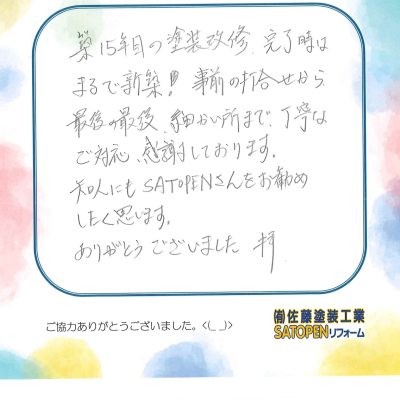 築15年目の塗装改修、完了時は
まるで新築!! 事前の打合せから
最後の最後、細かい所まで、丁寧な
ご対応、感謝しております。
知人にもSATOPENさんをお勧め
したく思います。
ありがとうございました 拝
ご協力ありがとうございました。<(_ _)>
㈲佐藤塗装工業
SATOPENリフォーム